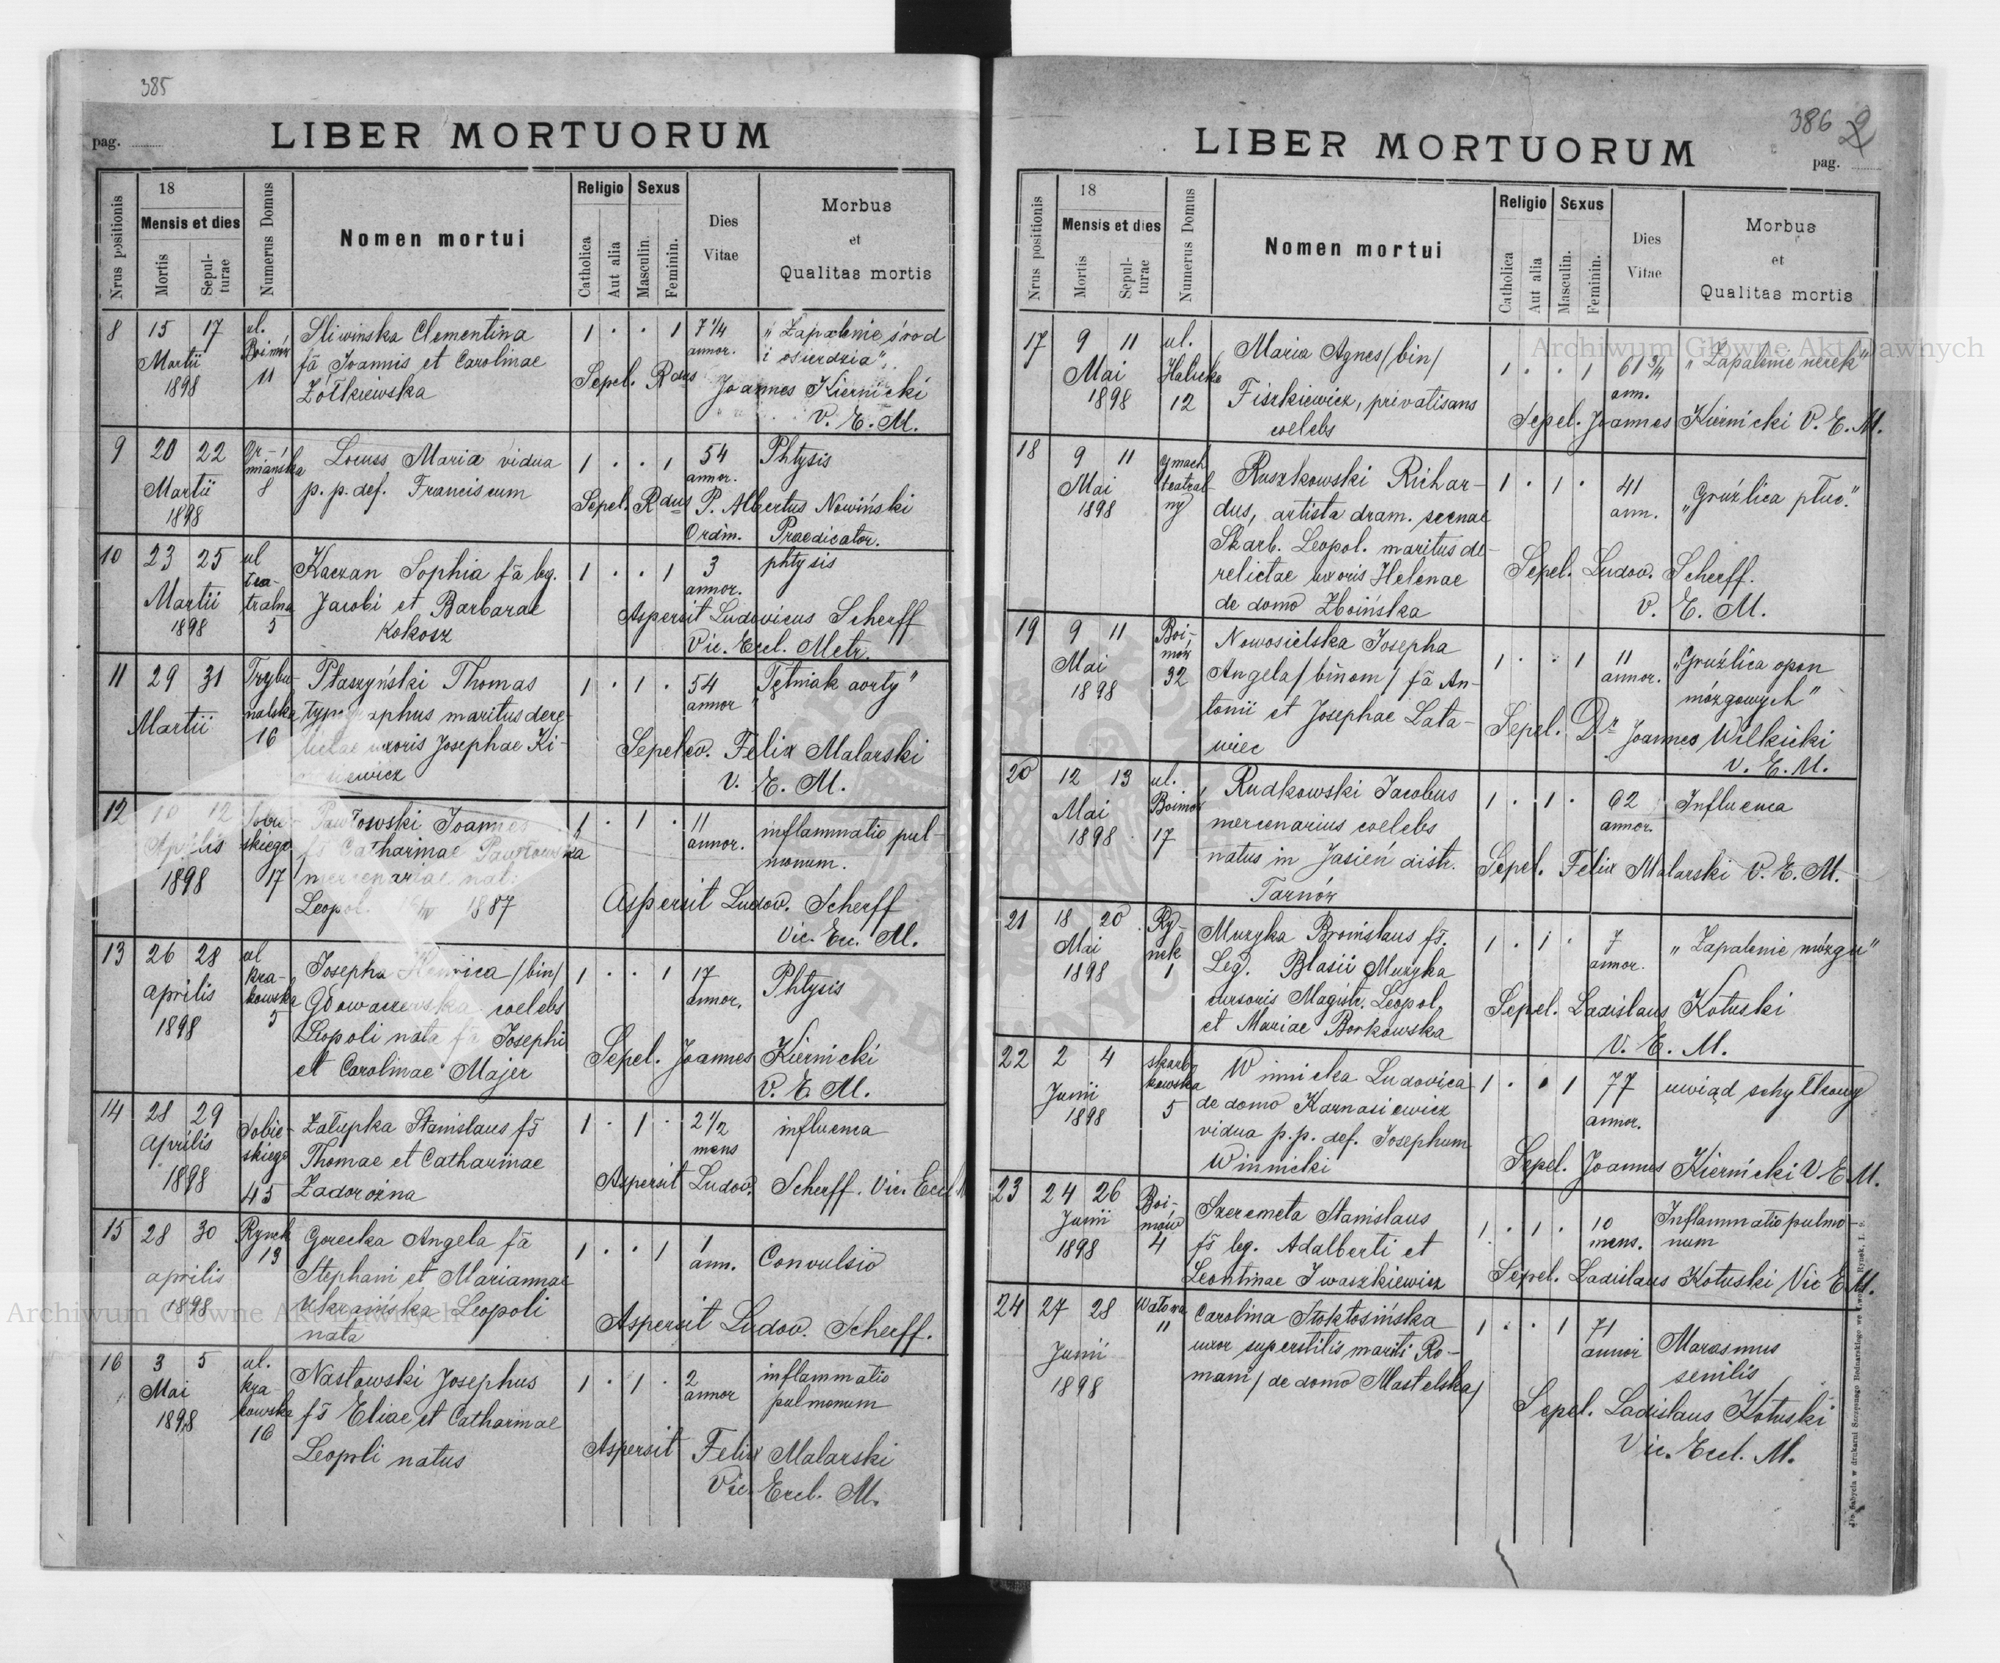 385
pag.
LIBER MORTUORUM
Nrus positionis
18
Mensis et dies
Mortis
Sepulturae
Numerus Domus
Nomen mortui
Religio
Catholica
Aut alia
Sexus
Masculin.
Feminin.
Dies
Vitae
Morbus
et
Qualitas mortis
8 15 17 ul. Sliwinska Clementina 1 · · 1 7 1/4 „Zapalenie środ
Martii Boimów fã Joannis et Carolinae annor. i osierdzia"
1898 11 Żółkiewska Sepel. Rdus Joannes Kiernicki
V. E. M.
9 20 22 Or- Locuss Maria vidua 1 · · 1 54 Phtysis
Martii miańska p. p. def. Franciscum annor.
1898 8 Sepel. Rdus P. Albertus Nowiński
Ordin. Praedicator.
10 23 25 ul Kaczan Sophia fã leg. 1 · · 1 3 phtysis
Martii tea- Jacobi et Barbarae annor.
1898 tralna Kokosz Aspersit Ludovicus Scherff
5 Vic. Eccl. Metr.
11 29 31 Trybu- Płaszyński Thomas 1 · 1 · 54 „Tętniak aorty"
Martii nalska typographus maritus dere- annor
16 lictae uxoris Josephae Ki- Sepel. Felix Malarski
V. E. M.
12 10 12 Sobie- Pawłowski Joannes 1 · 1 · 11 inflammatio pul-
Aprilis skiego fs Catharinae Pawłowska annor. monum.
1898 17 mercenariae nat:
Leopol. 1887 Aspersit Ludov. Scherff
Vic. Ecc. M.
13 26 28 ul Josepha Henrica /bin/ 1 · · 1 17 Phtysis
aprilis kra- coelebs annor.
1898 kowska Leopoli nata fã Josephi
5 et Carolinae Majer Sepel. Joannes Kiernicki
V. E. M.
14 28 29 Sobie- Załupka Stanislaus fs 1 · 1 · 2 1/2 influenca
aprilis skiego Thomae et Catharinae mens
1898 45 Zadorożna Aspersit Ludov. Scherff. Vic. Eccl M
15 28 30 Rynek Gorecka Angela fã 1 · · 1 1 Convulsio
aprilis 13 Stephani et Mariannae ann.
1898 Ukraińska Leopoli
nata Aspersit Ludov. Scherff.
16 3 5 ul. Nastowski Josephus 1 · 1 · 2 inflammatio
Mai kra- fs Eliae et Catharinae annor pulmonum
1898 kowska Leopoli natus Aspersit Felix Malarski
16 Vic. Eccl. M.
386
2
LIBER MORTUORUM
pag.
Nrus positionis
18
Mensis et dies
Mortis
Sepulturae
Numerus Domus
Nomen mortui
Religio
Catholica
Aut alia
Sexus
Masculin.
Feminin.
Dies
Vitae
Morbus
et
Qualitas mortis
17 9 11 ul. Maria Agnes /bin/ 1 · · 1 61 3/4 „Zapalenie nerek"
Mai Halicka Fiszkiewicz, privatisans ann.
1898 12 coelebs Sepel. Joannes Kiernicki V. E. M.
18 9 11 gmach Ruszkowski Richar- 1 · 1 · 41 „Gruźlica płuc."
Mai teatral- dus, artista dram. scenae ann.
1898 ny Skarb. Leopol. maritus de-
relictae uxoris Helenae Sepel. Ludov. Scherff.
de domo Zboińska V. E. M.
19 9 11 Boi- Nowosielska Josepha 1 · · 1 11 „Gruźlica opon
Mai mów Angela /binom/ fã An- annor. mózgowych"
1898 32 tonii et Josephae Lata- Sepel. Dr Joannes Wilkicki
wiec V. E. M.
20 12 13 ul. Rudkowski Jacobus 1 · 1 · 62 Influenca
Mai Boimów mercenarius coelebs annor.
1898 17 natus in Jasień distr. Sepel. Felix Malarski V. E. M.
Tarnów
21 18 20 Ry- Muzyka Bronislaus fs. 1 · 1 · 7 „Zapalenie mózgu"
Mai nek Leg. Blasii Muzyka annor.
1898 1 cursoris Magistr. Leopol. Sepel. Ladislaus Kotuski
et Mariae Borkowska V. E. M.
22 2 4 skarb- Winnicka Ludovica 1 · · 1 77 uwiąd schyłkowy
Junii kowska de domo Karnasiewicz annor.
1898 5 vidua p. p. def. Josephum
Winnicki Sepel. Joannes Kiernicki V. E M.
23 24 26 Boi- Szeremeta Stanislaus 1 · 1 · 10 Inflammatio pulmo-
Junii mów fs leg. Adalberti et mens. num
1898 4 Leontinae Iwaszkiewicz Sepel. Ladislaus Kotuski Vic E M.
24 27 28 Wałowa Carolina Stokłosińska 1 · · 1 71 Marasmus
Junii 11 uxor superstitis mariti Ro- annor senilis
1898 mani /de domo Mastelska/ Sepel. Ladislaus Kotuski
Vic. Eccl. M.
Archiwum Główne Akt Dawnych
Archiwum Główne Akt Dawnych